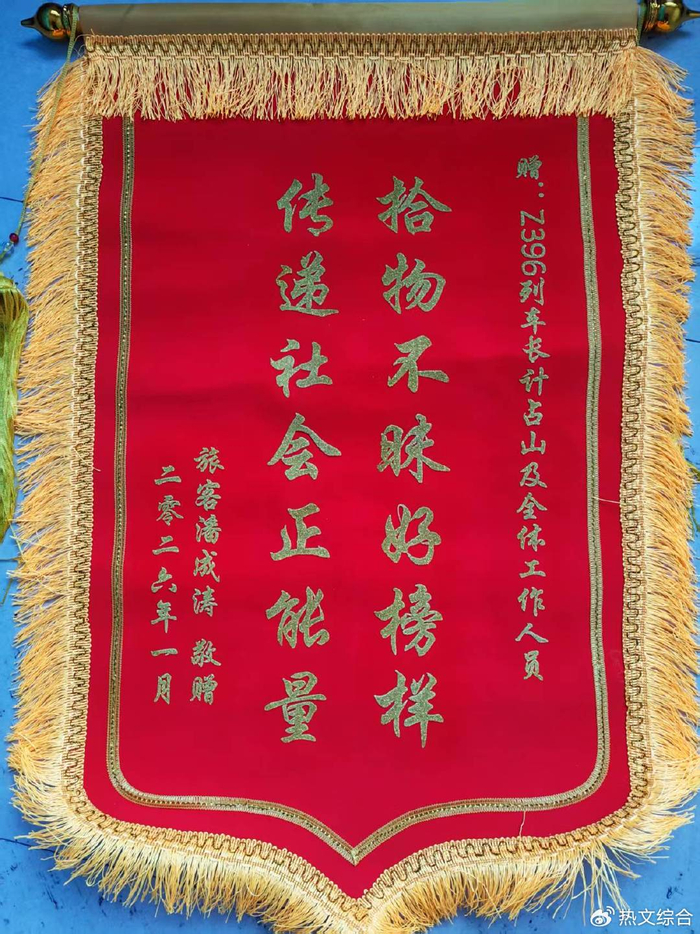 赠：Z396列车长计占山及全体工作人员
拾物不昧好榜样
传递社会正能量
旅客潘成涛 敬赠
二零二六年一月
热文综合